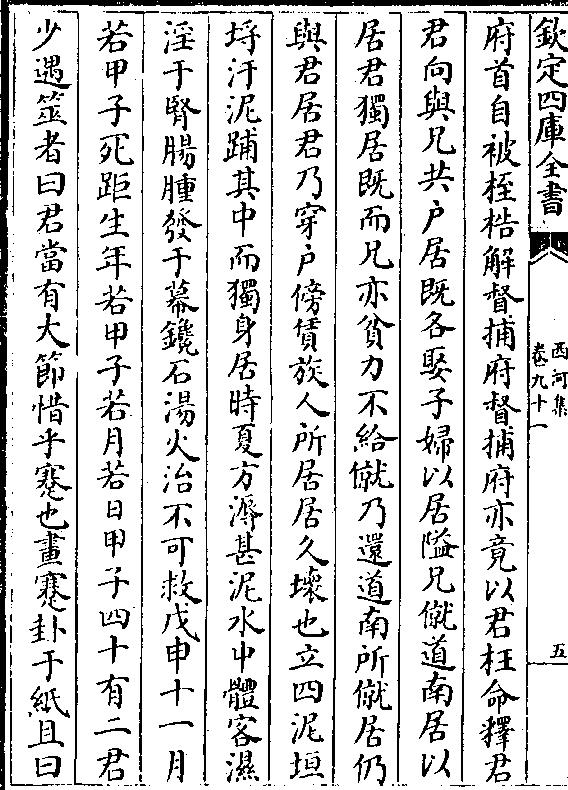 欽定四庫全書
西河集
卷九十一
五
府首自被桎梏解督捕府督捕府亦竟以君枉命釋君
君向與兄共戶居既各娶子婦以居隘兄僦道南居以
居君獨居既而兄亦貧力不給僦乃還道南所僦居仍
與君居君乃穿戶傍賃族人所居居久壞也立四泥垣
埒汗泥踊其中而獨身居時夏方溽甚泥水中體客濕
淫于腎腸腫發于幕鑱石湯火治不可救戊申十一月
若甲子死距生年若甲子若月若日甲子四十有二君
少遇筮者曰君當有大節惜乎蹇也畫蹇卦于紙且曰